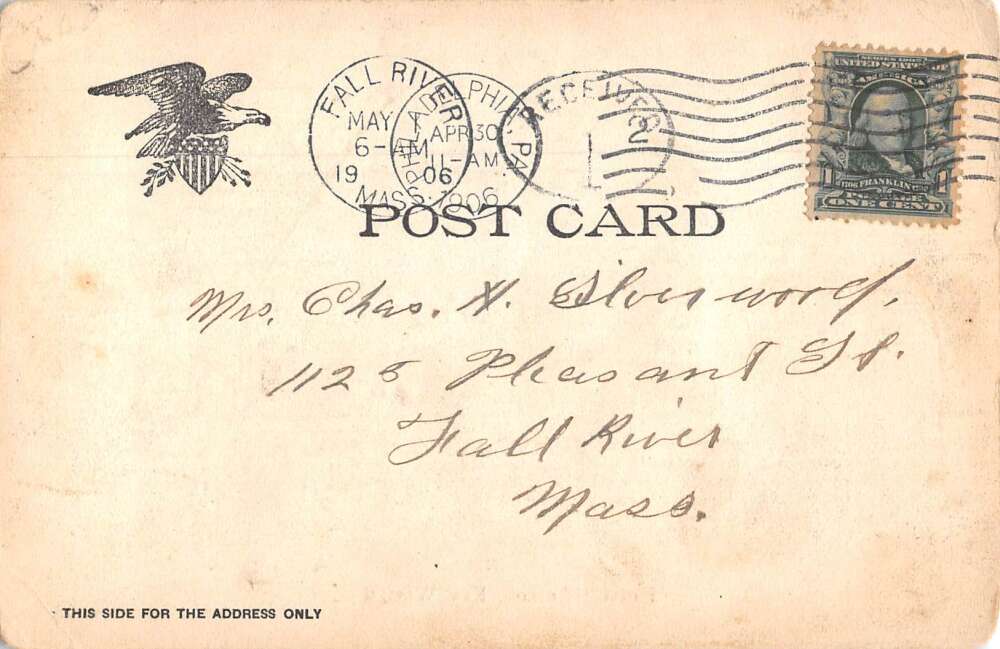 FALL RIVER
MAY 1
6-AM
19 06
MASS.
PHILADELPHIA, PA.
APR 30
11-AM
1906
RECEIVED
2
1
SERIES 1902
UNITED STATES OF
AMERICA
1 1706 FRANKLIN 1790 1
POSTAGE
ONE CENT
POST CARD
Mrs. Chas. H. Silverwood,
1125 Pleasant St.
Fall River
Mass.
THIS SIDE FOR THE ADDRESS ONLY